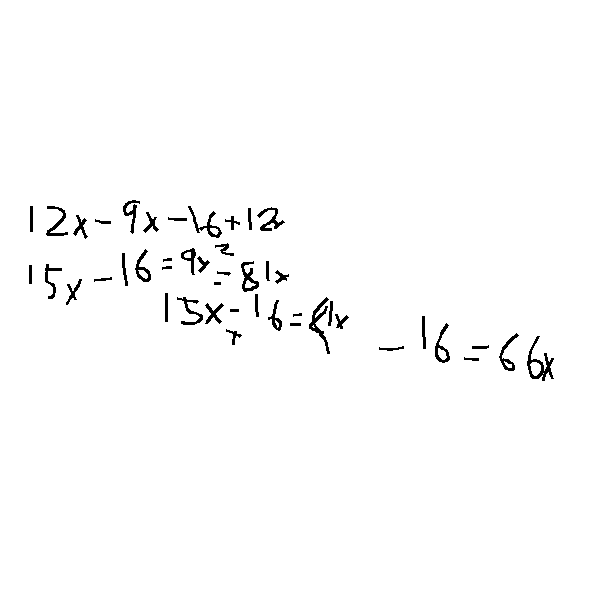 12x - 9x - 16 + 12
15x - 16 = 9x² = 81x
15x - 16 = 81x
- 16 = 66x